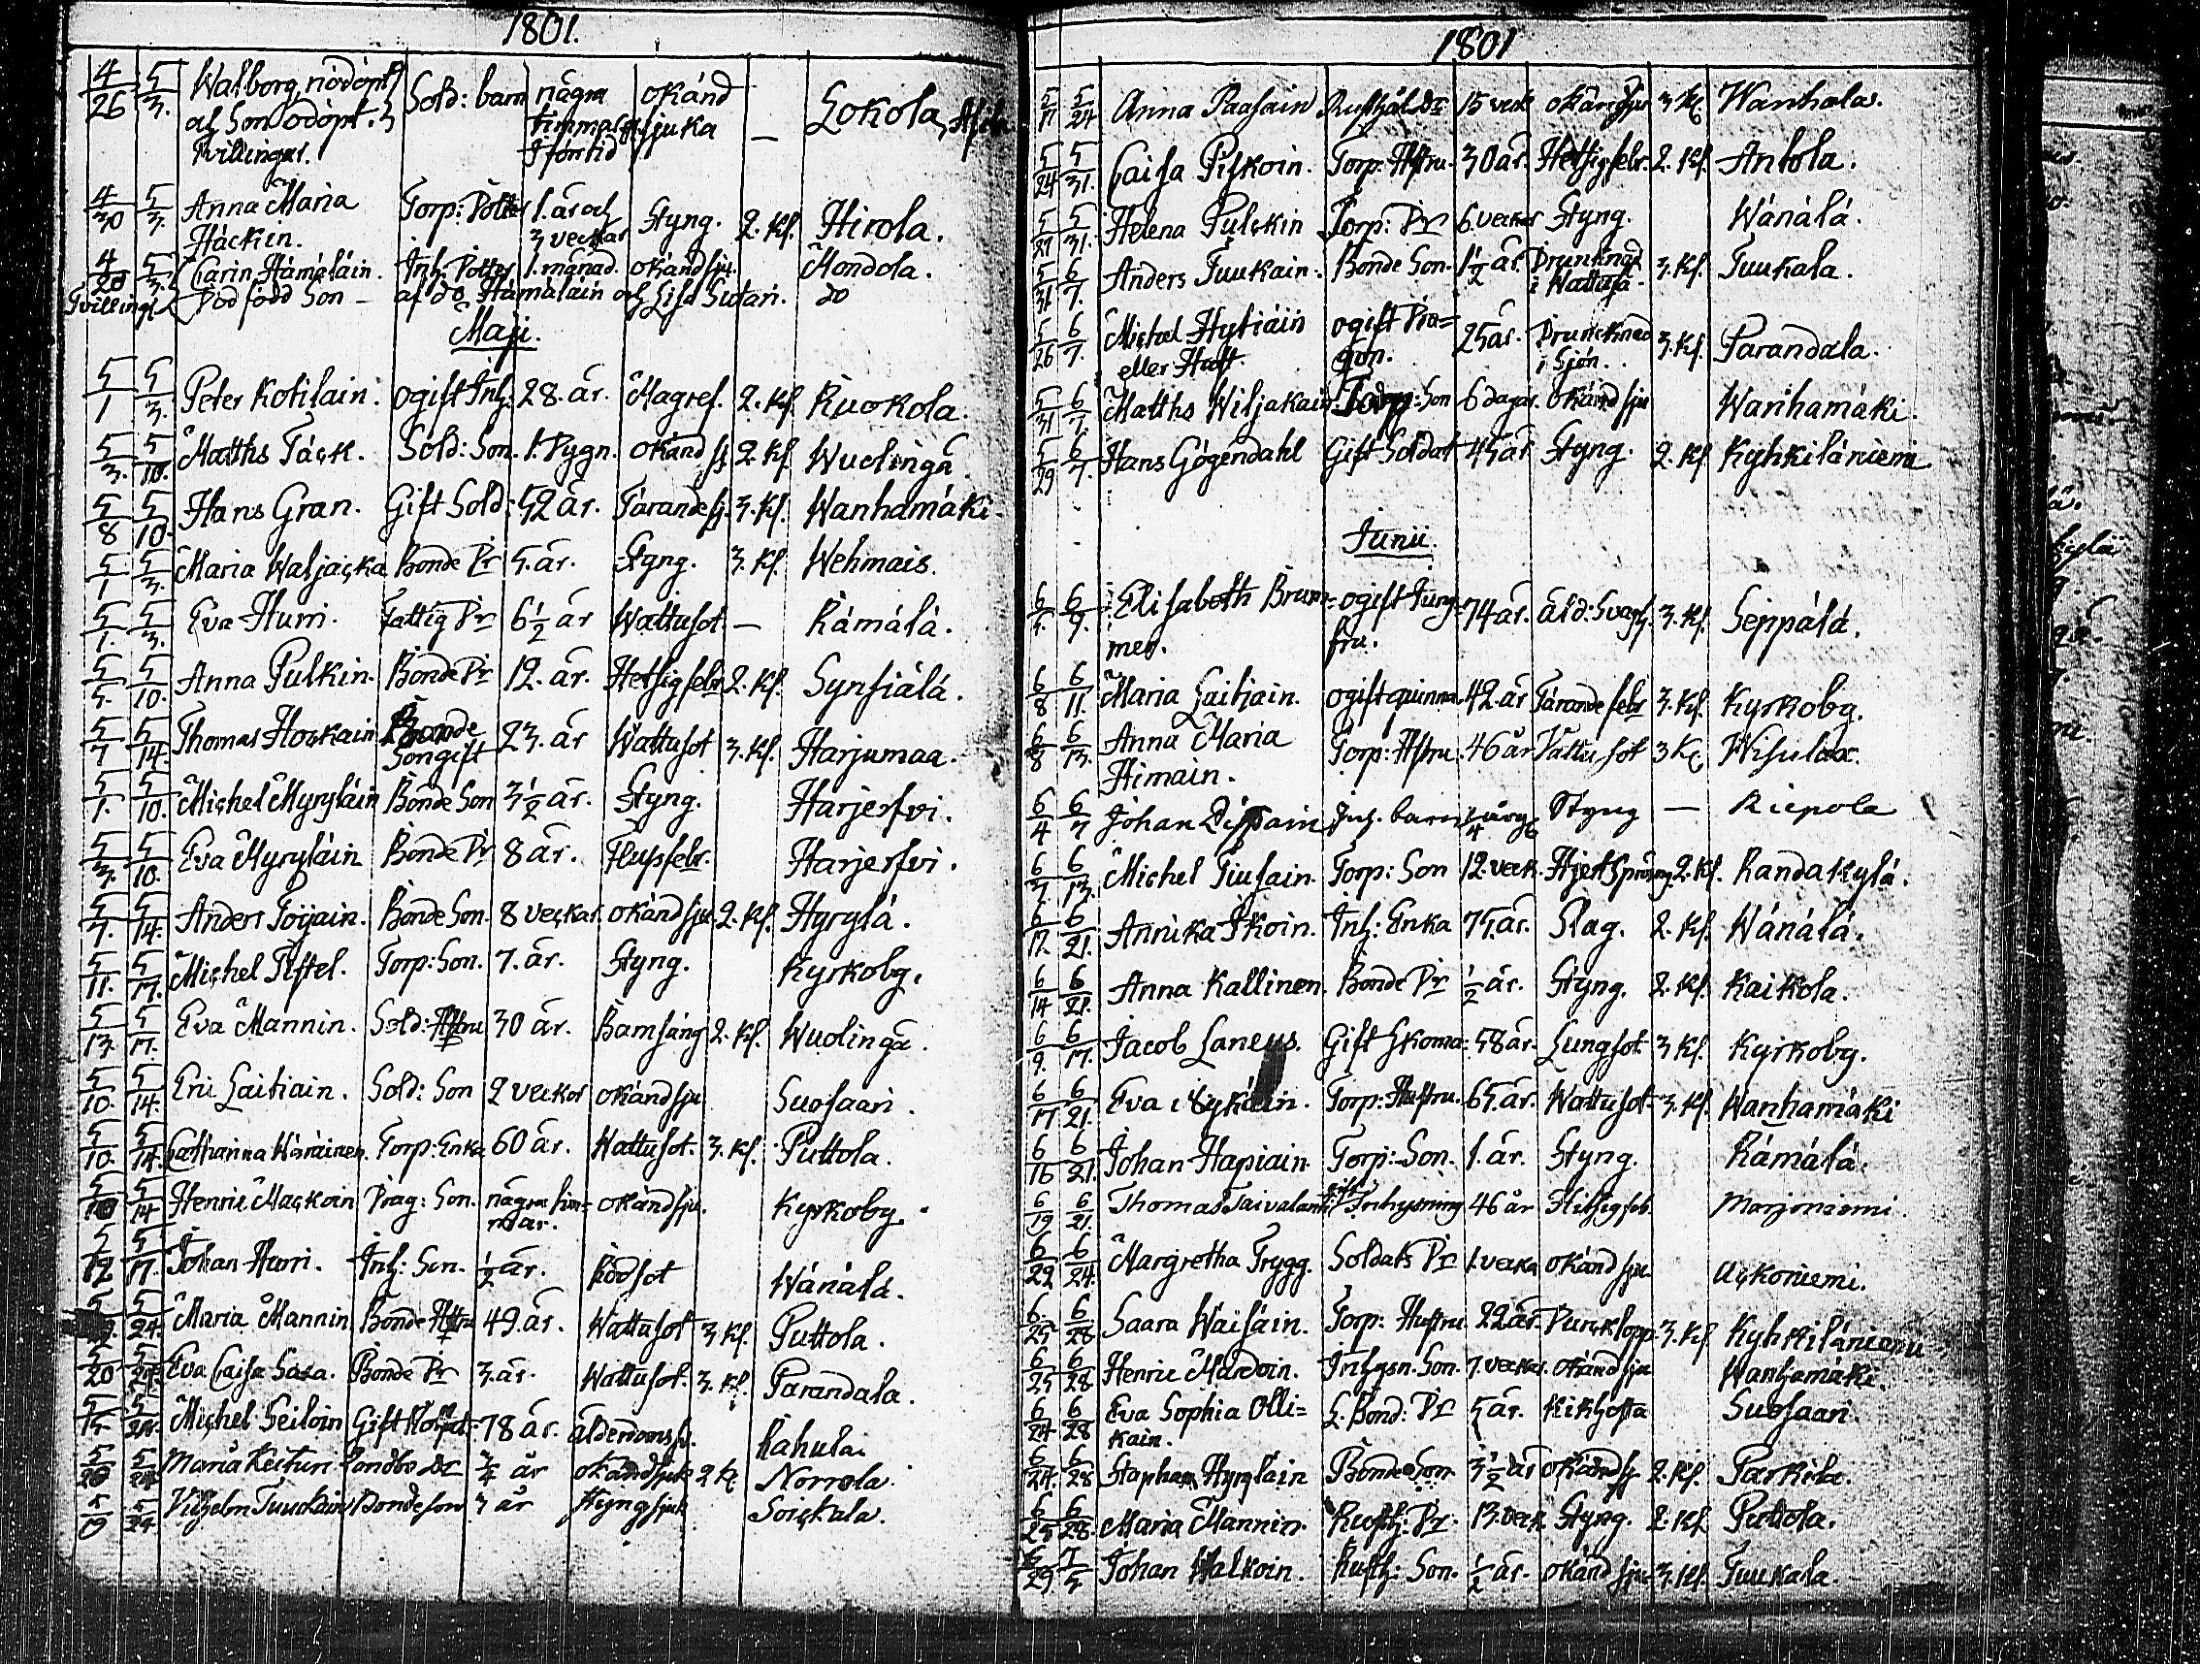 1801.
4/26 5/3. Walborg nödöpt
af Son odöpt.
Tvillingar. Sold: barn några timmar okänd sjuka — Lokola,
4/30 5/3. Anna Maria Häckin. Torp: Dotter 1. år och 3 veckor Styng. 2. Kl. Hirola.
4/20 5/3. Carin Hämäläin. Inh: Dotter 1. månad. okänd sju. Mondola.
Tvillingar Död född Son – af do Hämäläin och Lisa Sutari. do
Maji.
5/1 5/3. Peter Kotilain. ogift Inh: 28. år. Magref. 2. Kl. Ruokola.
5/3. 5/10. Matths Täck. Sold: Son. 1. Dygn. okänd sj 2. Kl Wuolinga.
5/8 5/10. Hans Gran. Gift Sold: 52 år. Tärande sj. 3. Kl. Wanhamäki.
5/1 5/3. Maria Waljacka Bonde Dr 5. år. Styng. 3. Kl. Wehmais.
5/1. 5/3. Eva Hurri. Fattig Dr 6½ år Wattusot. — Rämälä.
5/5. 5/10. Anna Pulkin. Bonde Dr 12. år. Hetsig febr. 2. Kl. Synsiälä.
5/7 5/14. Thomas Hockain Bonde Son gift 23. år Wattusot 3. Kl. Harjumaa.
5/1. 5/10. Michel Myryläin Bonde Son 3½ år. Styng. Harjerfvi.
5/3. 5/10. Eva Myryläin Bonde Dr 8 år. Flussfebr. Harjerfvi.
5/7. 5/14. Anders Toijain. Bonde Son. 8 veckor. okänd sju. 2. Kl. Hyrylä.
5/11. 5/17. Michel Pistel. Torp: Son. 7. år. Styng. Kyrkoby.
5/13. 5/17. Eva Mannin. Sold: Hstru 30 år. Barnsäng 2. Kl. Wuolinga.
5/10. 5/14. Eric Laitiain. Sold: Son 2 veckor okänd sju Suosaari.
5/10. 5/14. Catharina Wäräinen. Torp: Enka 60 år. Wattusot. 3. Kl. Puttola.
5/10 5/14 Henric Mackoin Drag: Son. några timmar. okänd sju. Kyrkoby.
5/12 5/17. Johan Hurri. Inh: Son. ½ år. Rödsot Wänälä.
5/19. 5/24. Maria Mannin Bonde Hstru 49. år. Wattusot 3 Kl. Puttola.
5/20 5/24. Eva Caisa Sara. Bonde Dr 3. år. Wattusot. 3. Kl. Parandala.
5/15. 5/24. Michel Seiloin Gift 78 år. ålderdomssv. Rahula.
5/20 5/24 Maria Keituri Landbo Dr ¾ år okänd sjuk 2 Kl Norrola.
5/19 5/24. Vilhelm Tuuckain Bondeson 3 år Styng sjuk Soickala.
1801
5/17 5/24 Anna Paasain Rusthål. Dr 15 veck okänd sju 3 Kl Wanhala.
5/24 5/31. Caisa Piskoin. Torp: Hstru. 30 år. Hetsig febr. 2. Kl. Antola.
5/27 5/31. Helena Pulckin Torp: Dr 6. veckor Styng. Wänälä.
5/31 6/7. Anders Tuukain. Bonde Son. 1½ år. Drunknad i Wattuså. 3. Kl. Tuukala.
5/26 6/7. Michel Hytiäin eller Haft. ogift Dragon. 25 år. Drunknad i Sjön. 3. Kl. Parandala.
5/31 6/7. Matths Wiljakain. Torp: Son 6 dagar. Okänd sju Wanhamäki.
5/29 6/7. Hans Gögendahl Gift Soldat 45 år Styng. 2. Kl Kyhkiläniemi
Junii.
6/5. 6/9. Elisabeth Brummer. ogift Jungfru. 74 år. åld: Svagh. 3. Kl. Seppälä.
6/8 6/11. Maria Laitiain. ogift quinna. 42. år Tärande febr 3. Kl. Kyrkoby.
6/8 6/13. Anna Maria Himain. Torp: Hstru. 46 år Vattusot 3 Kl Wisulax.
6/4 6/7 Johan Inh. barn ¼ årg Styng — Riepola
6/7. 6/13. Michel Tiusain. Torp: Son 12. veck. Hjertsprång. 2. Kl. Randakylä.
6/17. 6/21. Annika Ikoin. Inh: Enka 75. år. Slag. 2. Kl. Wänälä.
6/14 6/21. Anna Kallinen. Bonde Dr ½ år. Styng. 2. Kl. Kaikola.
6/9. 6/17. Jacob Laneus. Gift Skoma: 58 år. Lungsot. 3 Kl. Kyrkoby.
6/17 6/21. Eva Nykäin. Torp: Hustru. 65. år. Wattusot. 3. Kl. Wanhamäki
6/16 6/21. Johan Hapiain. Torp: Son. 1. år. Styng. Rämälä.
6/19 6/21. Thomas Taivalanti gift Inhysning 46 år Hitsig feb. Marjoniemi.
6/22 6/24. Margretha Trygg. Soldats Dr 1. vecka okänd sju. Uckoniemi.
6/25 6/28 Saara Waisäin. Torp: Hustru 22 år. Durcklopp. 3. Kl Kyhkiläniemi
6/25 6/28 Henric Mardoin. Inhysn. Son. 7. veckor. okänd sju Wanhamäki.
6/24 6/28 Eva Sophia Ollikain. L. Bond: Dr 5 år. Kikhosta Suosaari.
6/24. 6/28 Staphan Hyryläin Bonde Son. 3½ år okänd sj 2. Kl. Parkila.
6/25 6/28. Maria Mannin. Rusth: Dr. 13. veck Styng. 2. Kl Puttola.
6/29 7/5 Johan Walkoin. Rusth: Son. ½ år. okänd sju 3. Kl. Tuukala.